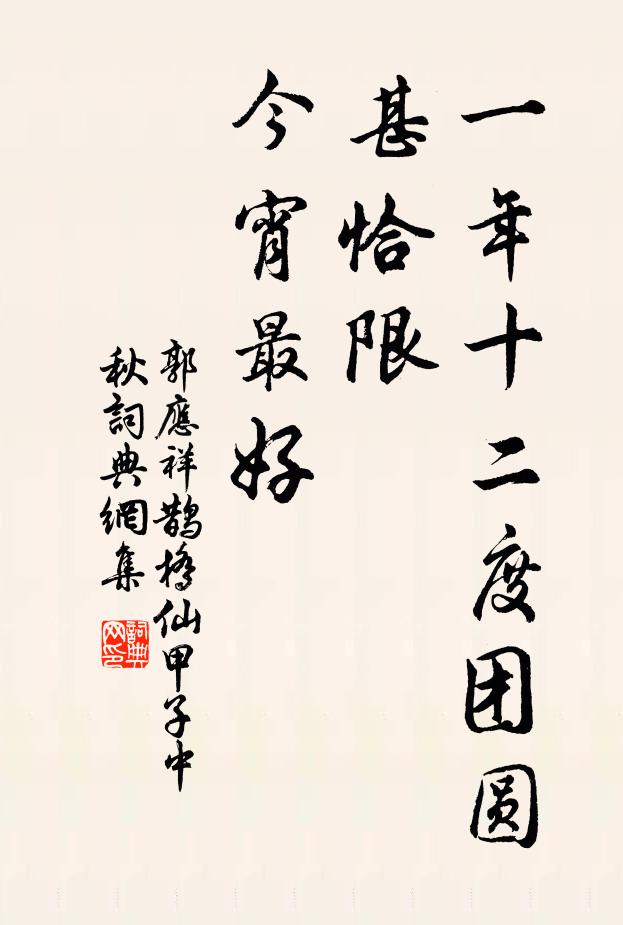 一年十二度团圆
甚恰限
今宵最好
郭應祥鵲橋仙甲子中
秋詞典網集
詞典
网印